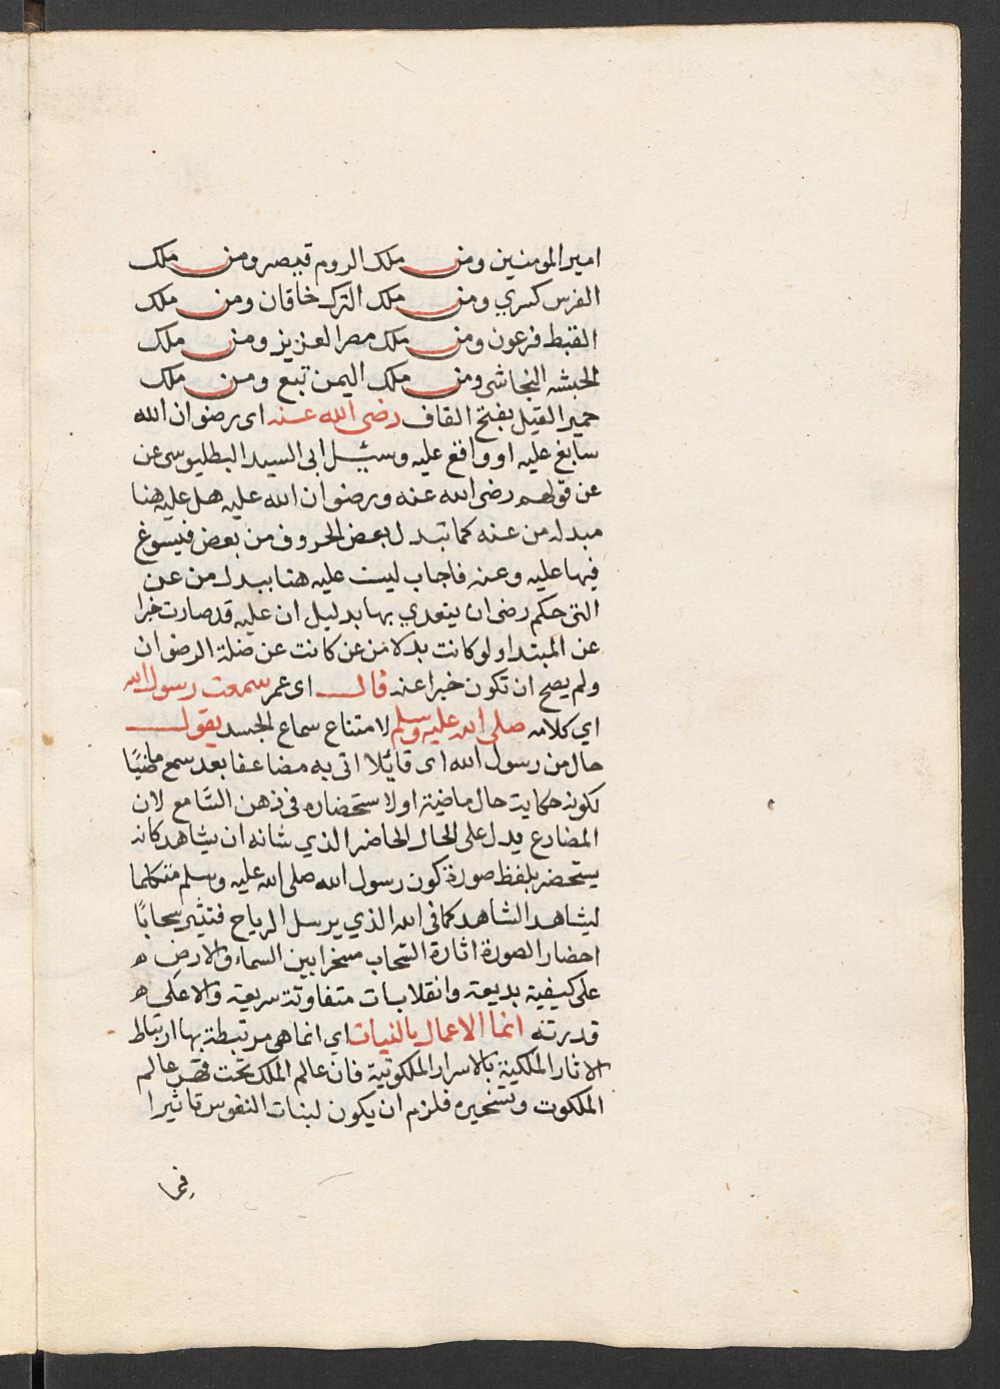 امير المومنين ومن ملك الروم قيصر ومن ملك
الفرس كسري ومن ملك الترك خاقان ومن ملك
القبط فرعون ومن ملك مصر العزيز ومن ملك
الحبشه النجاشي ومن ملك اليمن تبع ومن ملك
حمير القيل بفتح القاف رضى الله عنه اى رضوان الله
سابغ عليه او واقع عليه وسئل ابى السيد البطليوسى عن
عن قولهم رضى الله عنه ورضوان الله عليه هل عليه هنا
مبدله من عنه كما تبدل بعض الحروف من بعض فيسوغ
فيها عليه وعنه فاجاب ليست عليه هنا ببدل من عن
التى حكم رضى ان يتعدي بها بدليل ان عليه قد صارت خبرا
عن المبتدا ولو كانت بدلا من عن كانت عن صلة الرضوان
ولم يصح ان تكون خبرا عنه قال اى عمر سمعت رسول الله
اي كلامه صلى الله عليه وسلم لامتناع سماع الجسد يقول
حال من رسول الله اى قايلا اتى به مضاعفا بعد سمع ماضيًا
لكونه حكاية حال ماضية او لاستحضاره فى ذهن السَّامع لان
المضارع يدل على الحال الحاضر الذي شانه ان يشاهد كانه
يستحضر بلفظ صورة كون رسول الله صلى الله عليه وسلم متكلما
ليشاهد الشاهد كما فى الله الذي يرسل الرياح فتثير سحابًا
احضار الصورة اثارة السَّحاب مسخرا بين السماء والارض ه
على كيفية بديعة وانقلابات متفاوتة سريعة والاعلى ه
قدرته انما الاعمال بالنيات اي انما هى مرتبطة بها ارتباط
الاثار الملكية بالاسرار الملكوتية فان عالم الملك تحت قهر عالم
الملكوت وتسخيره فلزم ان يكون لنيات النفوس تاثيرا
فيما